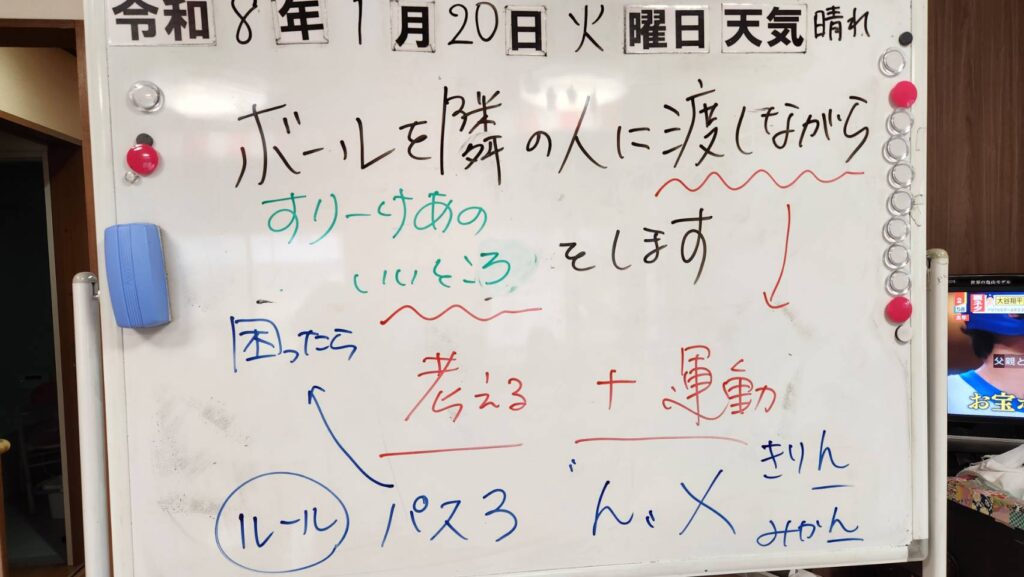 令和8年1月20日火曜日天気晴れ
ボールを隣の人に渡しながら
すりーけあの
いいところをします
困ったら
考える+運動
ルール パス3 "ん"× きりん
みかん
大谷翔平
父親と
お宝